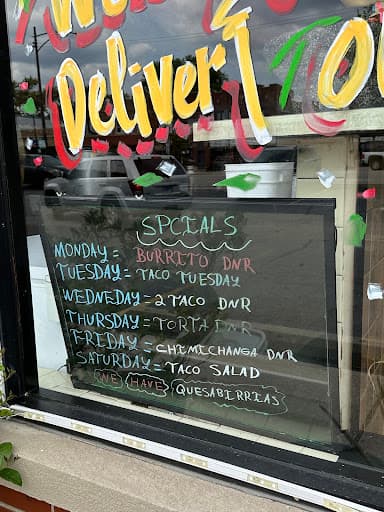 We
Deliver! To
SPCIALS
MONDAY = BURRITO DNR
TUESDAY = TACO TUESDAY
WEDNEDAY = 2 TACO DNR
THURSDAY = TORTA DNR
FRIDAY = CHIMICHANGA DNR
SATURDAY = TACO SALAD
WE HAVE QUESABIRRIAS